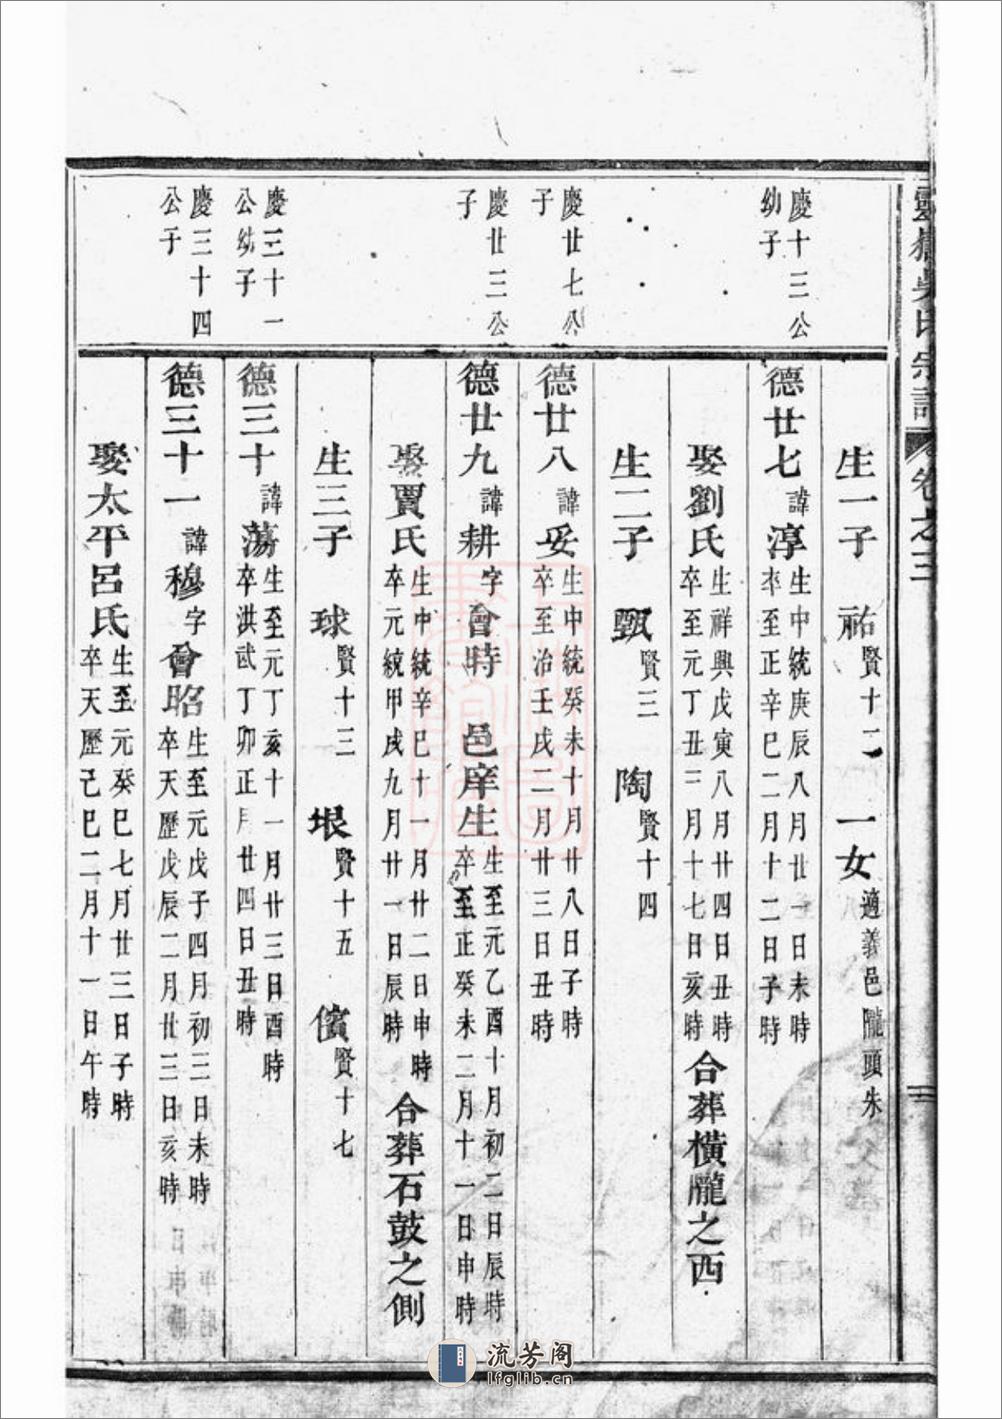 靈嶽吳氏宗譜 卷之三
生一子 祐賢十二 一女適義邑隴頭朱
慶十三公幼子
德廿七諱淳生中統庚辰八月廿一日未時卒至正辛巳二月十二日子時
娶劉氏生祥興戊寅八月廿四日丑時卒至元丁丑三月十七日亥時合葬橫隴之西
生二子 甄賢三 陶賢十四
慶廿七公子
德廿八諱妥生中統癸未十月廿八日子時卒至治壬戌二月廿三日丑時
慶廿三公子
德廿九諱耕字會時 邑庠生生至元乙酉十月初二日辰時卒至正癸未二月十一日申時
娶賈氏生中統辛巳十一月廿二日申時卒元統甲戌九月廿一日辰時合葬石鼓之側
生三子 球賢十三 垠賢十五 儐賢十七
慶三十一公幼子
德三十諱蕩生至元丁亥十一月廿三日酉時卒洪武丁卯正月廿四日丑時
慶三十四公子
德三十一諱穆字會昭生至元戊子四月初三日未時卒天歷戊辰二月廿三日亥時
娶太平呂氏生至元癸巳七月廿三日子時卒天歷己巳二月十一日午時
流芳阁
lfglib.cn